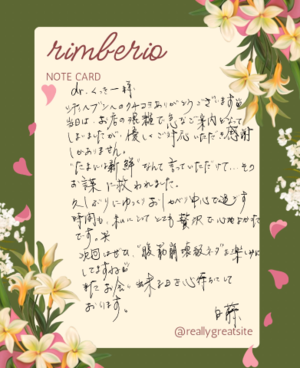 rimberio
NOTE CARD
dr.くっきー様
シティヘブンへのクチコミありがとうございます
当日は、お店の混雑で急なご案内となって
しまいましたが、優しくご対応いただき感謝
しかありません。
"たまには新鮮"なんて言っていただけて…その
お言葉に救われました。
久しぶりにゆっくりおしゃべり中心で過ごす
時間も、私にとってとても贅沢で心地よかった
です。
次回はぜひ、"腹筋崩壊級ネタ"を楽しみに
してますね
またお会い出来る日を心待ちにして
おります。
@reallygreatsite